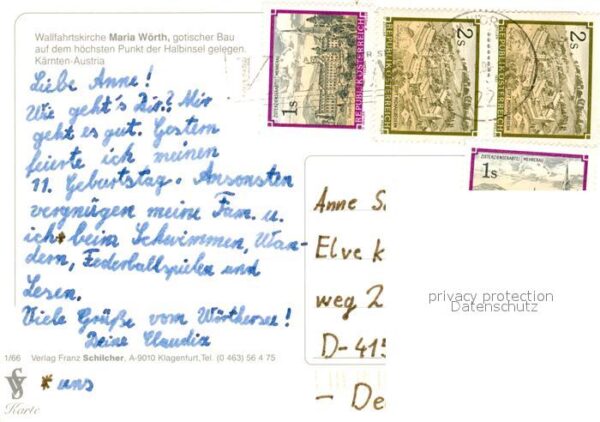 Wallfahrtskirche Maria Wörth, gotischer Bau
auf dem höchsten Punkt der Halbinsel gelegen.
Kärnten-Austria
Liebe Anne!
Wie geht's Dir? Mir
geht es gut. Gestern
feierte ich meinen
11. Geburtstag. Ansonsten
vergnügen meine Fam. u.
ich * beim Schwimmen, Wan-
dern, Federballspielen und
Lesen.
Viele Grüße vom Wörthersee!
Deine Claudia
1/66 Verlag Franz Schilcher, A-9010 Klagenfurt, Tel. (0 463) 56 4 75
* uns
Karte
1s
REPUBLIK ÖSTERREICH
2s
2s
1s
Anne S
Elvek
weg 2
D-415
- De
privacy protection
Datenschutz